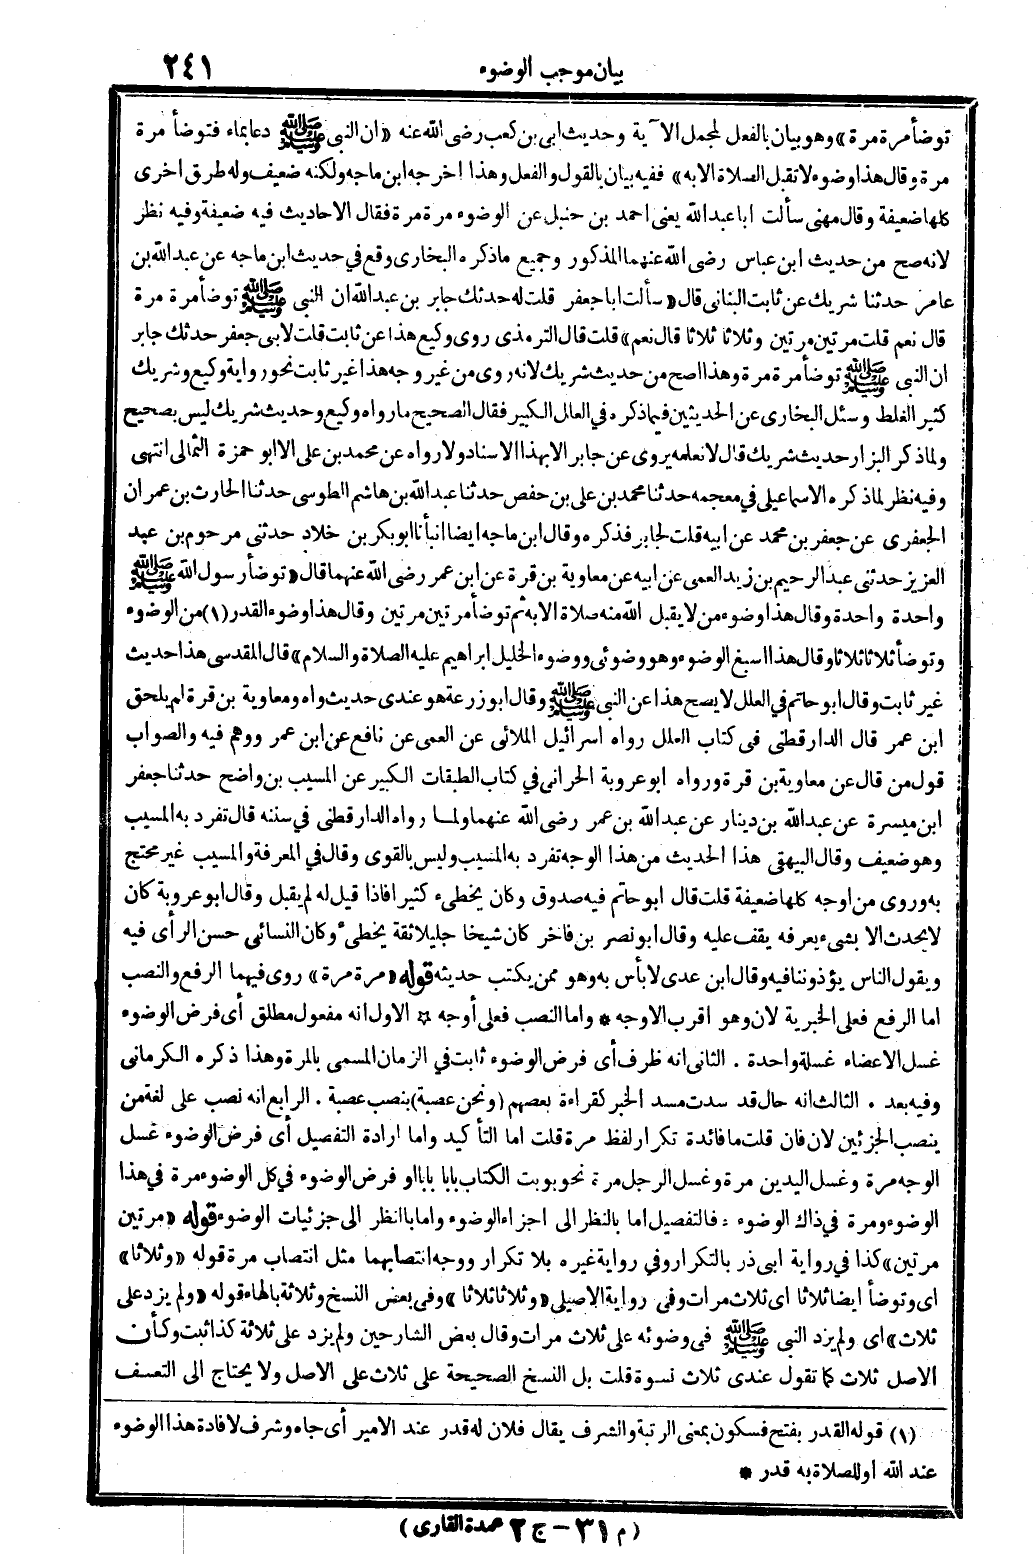 بيان موجب الوضوء ٢٤١
توضأ مرة مرة» وهو بيان بالفعل لمجمل الآية وحديث ابى بن كعب رضى الله عنه «ان النبى ﷺ دعا بماء فتوضأ مرة
مرة وقال هذا وضوء لا تقبل الصلاة الا به» ففيه بيان بالقول والفعل وهذا اخرجه ابن ماجه ولكنه ضعيف وله طرق اخرى
كلها ضعيفة وقال مهنى سألت ابا عبد الله يعنى احمد بن حنبل عن الوضوء مرة مرة فقال الاحاديث فيه ضعيفة وفيه نظر
لانه صح من حديث ابن عباس رضى الله عنهما المذكور وجميع ماذكره البخارى وقع في حديث ابن ماجه عن عبد الله بن
عامر حدثنا شريك عن ثابت البنانى قال «سألت ابا جعفر قلت له حدثك جابر بن عبد الله ان النبى ﷺ توضأ مرة مرة
قال نعم قلت مرتين مرتين وثلاثا ثلاثا قال نعم» قلت قال الترمذى روى وكيع هذا عن ثابت قلت لابى جعفر حدثك جابر
ان النبى ﷺ توضأ مرة مرة وهذا اصح من حديث شريك لانه روى من غير وجه هذا غير ثابت نحو رواية وكيع وشريك
كثير الغلط وسئل البخارى عن الحديثين فيما ذكره في العلل الكبير فقال الصحيح ما رواه وكيع وحديث شريك ليس بصحيح
ولما ذكر البزار حديث شريك قال لا نعلمه يروى عن جابر الا بهذا الاسناد ولا رواه عن محمد بن على الا ابو حمزة الثمالى انتهى
وفيه نظر لما ذكره الاسماعيلى في معجمه حدثنا محمد بن على بن حفص حدثنا عبد الله بن هاشم الطوسى حدثنا الحارث بن عمران
الجعفرى عن جعفر بن محمد عن ابيه قلت لجابر فذكره وقال ابن ماجه ايضا انبأنا ابو بكر بن خلاد حدثنى مرحوم بن عبد
العزيز حدثنى عبد الرحيم بن زيد العمى عن ابيه عن معاوية بن قرة عن ابن عمر رضى الله عنهما قال «توضأ رسول الله ﷺ
واحدة واحدة وقال هذا وضوء من لا يقبل الله منه صلاة الا به ثم توضأ مرتين مرتين وقال هذا وضوء القدر (١) من الوضوء
وتوضأ ثلاثا ثلاثا وقال هذا اسبغ الوضوء وهو وضوئى ووضوء الخليل ابراهيم عليه الصلاة والسلام» قال المقدسى هذا حديث
غير ثابت وقال ابو حاتم في العلل لا يصح هذا عن النبى ﷺ وقال ابو زرعة هو عندى حديث واه ومعاوية بن قرة لم يلحق
ابن عمر قال الدارقطنى فى كتاب العلل رواه اسرائيل الملائى عن العمى عن نافع عن ابن عمر ووهم فيه والصواب
قول من قال عن معاوية بن قرة ورواه ابو عروبة الحرانى في كتاب الطبقات الكبير عن المسيب بن واضح حدثنا جعفر
ابن ميسرة عن عبد الله بن دينار عن عبد الله بن عمر رضى الله عنهما ولما رواه الدارقطنى في سننه قال تفرد به المسيب
وهو ضعيف وقال البيهقى هذا الحديث من هذا الوجه تفرد به المسيب وليس بالقوى وقال في المعرفة والمسيب غير محتج
به وروى من اوجه كلها ضعيفة قلت قال ابو حاتم فيه صدوق وكان يخطىء كثيرا فاذا قيل له لم يقبل وقال ابو عروبة كان
لا يحدث الا بشىء يعرفه يقف عليه وقال ابو نصر بن فاخر كان شيخا جليلا ثقة يخطىء وكان النسائى حسن الرأى فيه
ويقول الناس يؤذوننا فيه وقال ابن عدى لا بأس به وهو ممن يكتب حديثه قوله «مرة مرة» روى فيهما الرفع والنصب
اما الرفع فعلى الخبرية لان وهو اقرب الاوجه * واما النصب فعلى أوجه ☆ الاول انه مفعول مطلق أى فرض الوضوء
غسل الاعضاء غسلة واحدة . الثانى انه ظرف أى فرض الوضوء ثابت في الزمان المسمى بالمرة وهذا ذكره الكرمانى
وفيه بعد . الثالث انه حال قد سدت مسد الخبر كقراءة بعضهم (ونحن عصبة) بنصب عصبة . الرابع انه نصب على لغة من
ينصب الجزئين لان فان قلت ما فائدة تكرار لفظ مرة قلت اما التأكيد واما ارادة التفصيل أى فرض الوضوء غسل
الوجه مرة وغسل اليدين مرة وغسل الرجل مرة نحو بوبت الكتاب بابا بابا او فرض الوضوء في كل الوضوء مرة في هذا
الوضوء ومرة في ذاك الوضوء : فالتفصيل اما بالنظر الى اجزاء الوضوء واما بالنظر الى جزئيات الوضوء قوله «مرتين
مرتين» كذا في رواية ابى ذر بالتكرار وفي رواية غيره بلا تكرار ووجه انتصابهما مثل انتصاب مرة قوله «وثلاثا»
اى وتوضأ ايضا ثلاثا اى ثلاث مرات وفى رواية الاصيلى «وثلاثا ثلاثا» وفى بعض النسخ وثلاثة بالهاء قوله «ولم يزد على
ثلاث» اى ولم يزد النبى ﷺ فى وضوئه على ثلاث مرات وقال بعض الشارحين ولم يزد على ثلاثة كذا ثبت وكأن
الاصل ثلاث كما تقول عندى ثلاث نسوة قلت بل النسخ الصحيحة على ثلاث على الاصل ولا يحتاج الى التعسف
(١) قوله القدر بفتح فسكون بمعنى الرتبة والشرف يقال فلان له قدر عند الامير أى جاه وشرف لافادة هذا الوضوء
عند الله او للصلاة به قدر *
(م ٣١ - ج ٢ عمدة القارى)